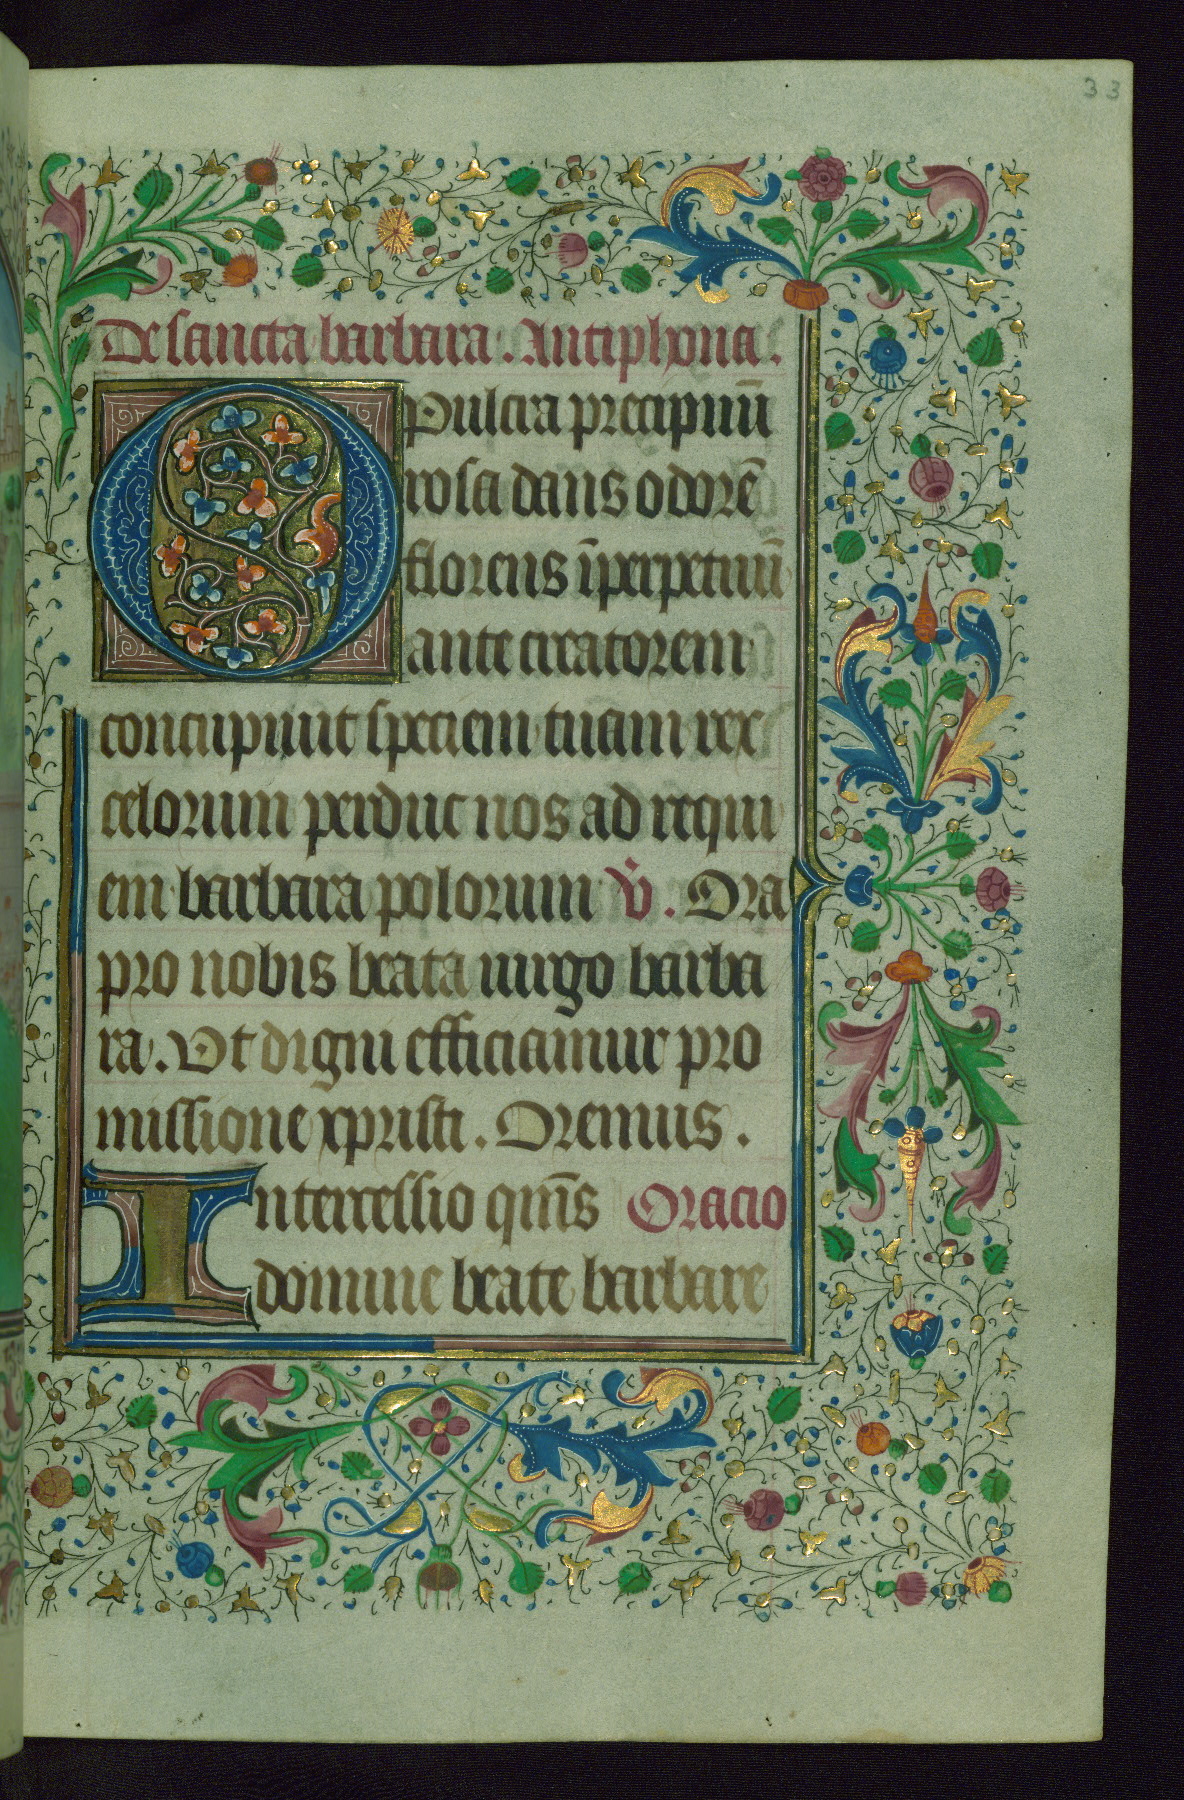 33
De sancta barbara. Antiphona.
O Pulcra precipuū
rosa dans odorē
florens ī perpetuū
ante creatorem
concupiuit speciem tuam rex
celorum perduc nos ad requi
em barbara polorum V̄. Ora
pro nobis beata uirgo barba
ra. Vt digni efficiamur pro
missione xpristi. Oremus.
Intercessio qm̄s Oracio
domine beate barbare